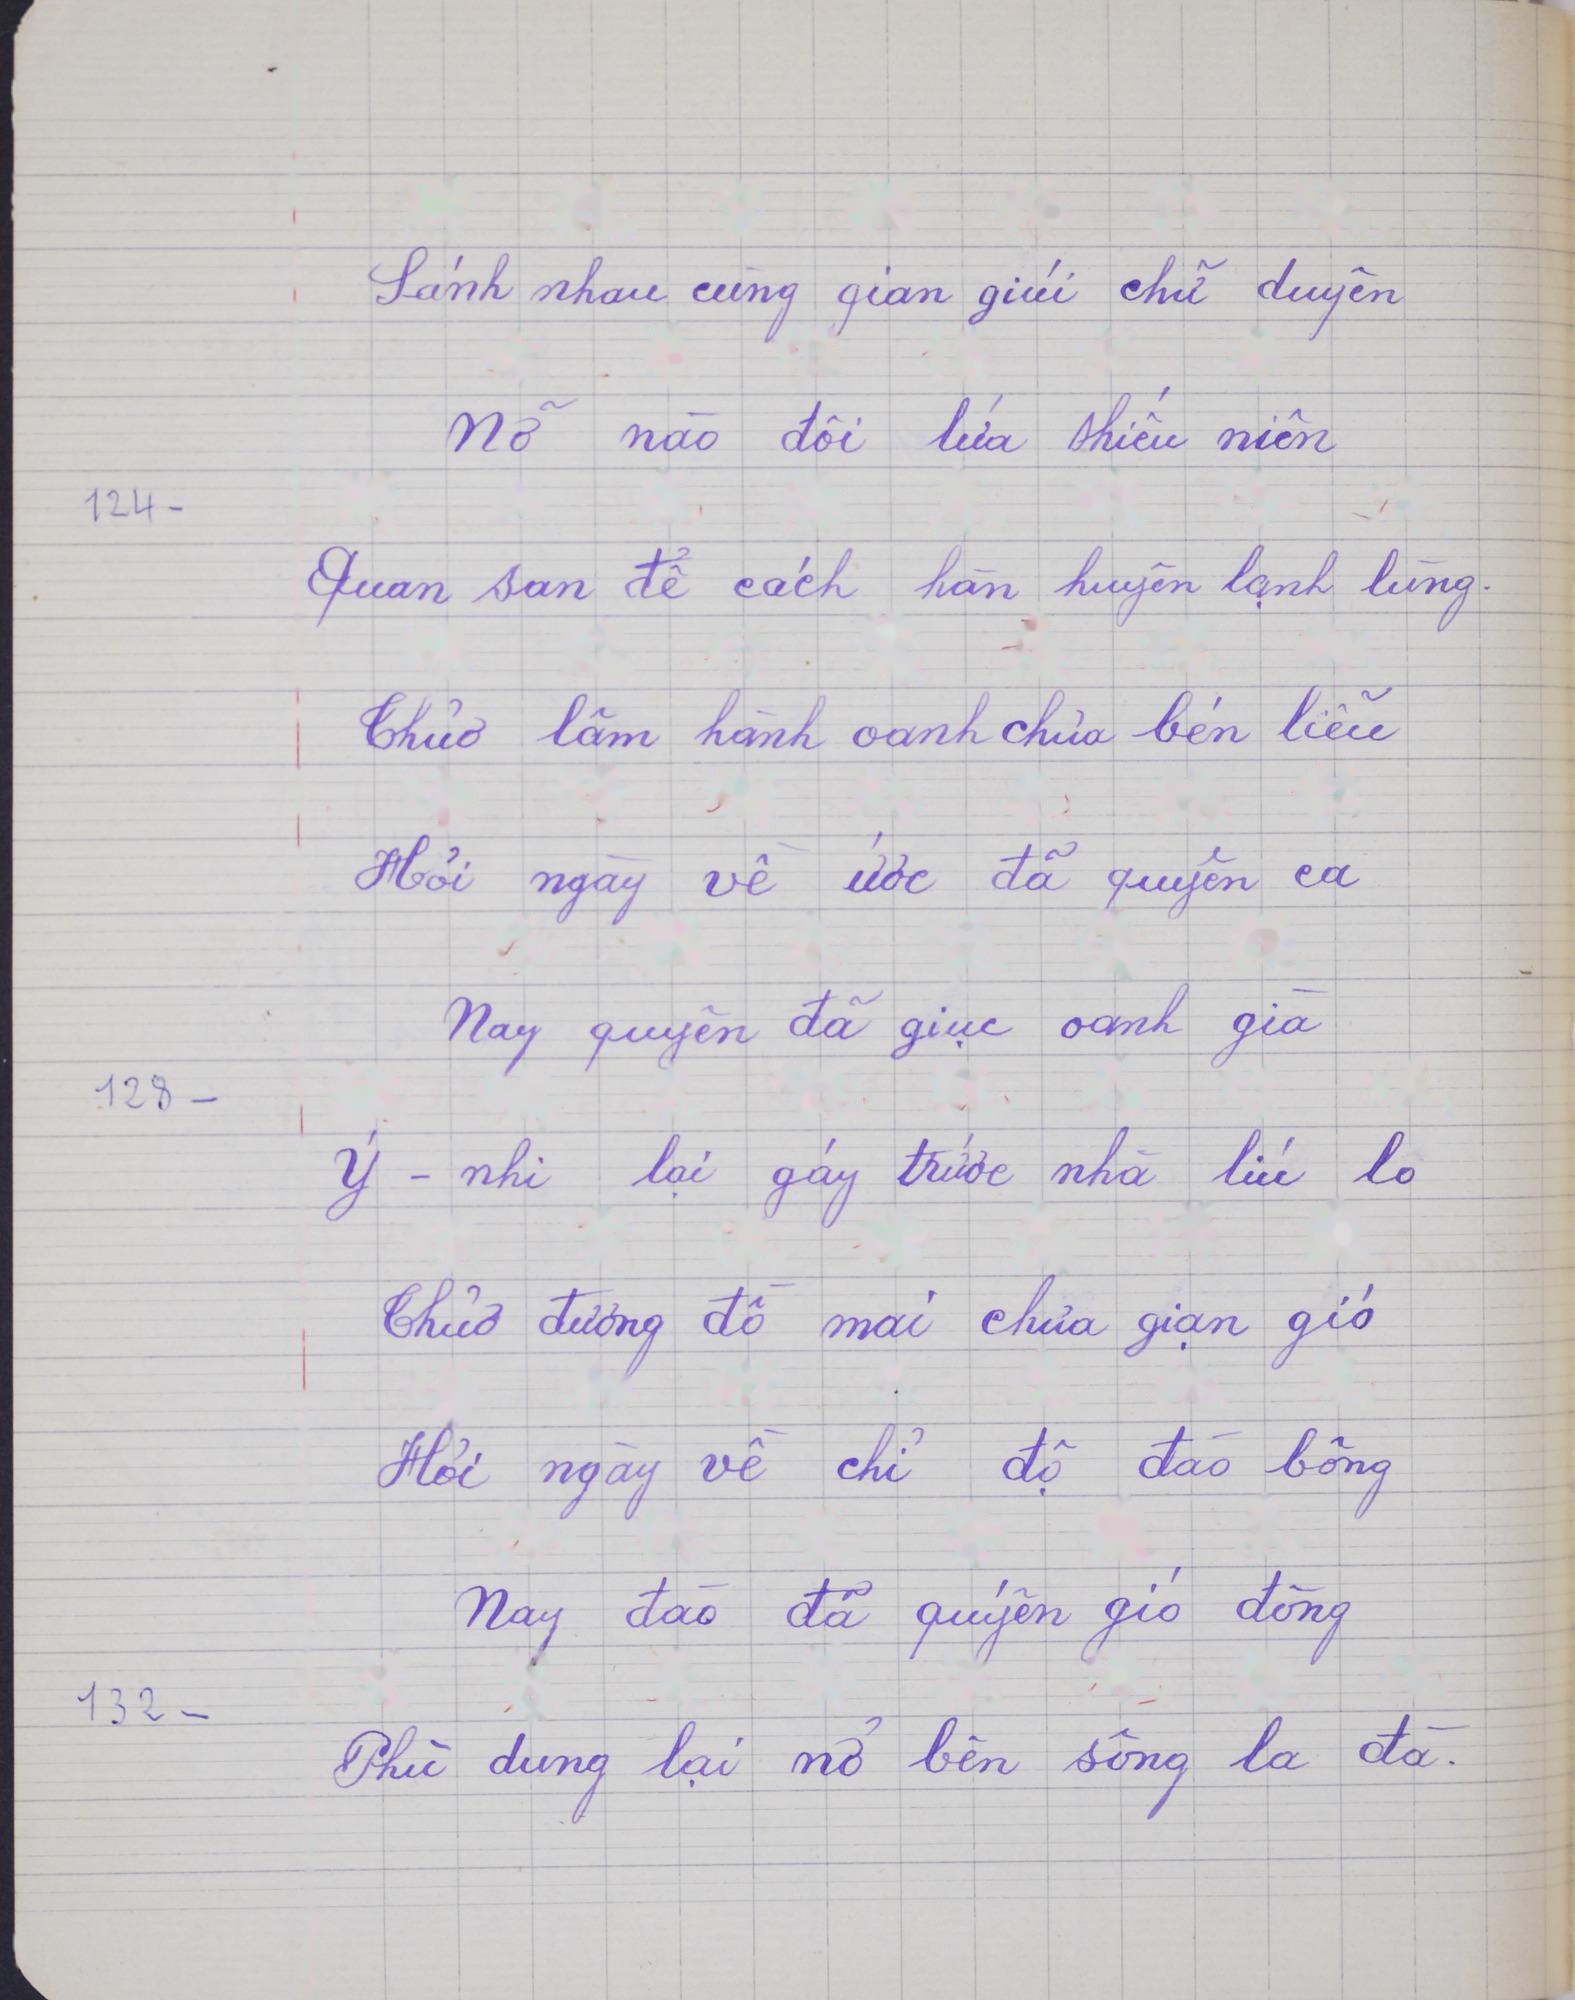 Sánh nhau cùng gian giúi chữ duyên
Nỡ nào đôi lứa thiếu niên
124-
Quan san để cách hàn huyên lạnh lùng.
Thủơ lâm hành oanh chửa bén liễu
Hỏi ngày về ước đã quyên ca
Nay quyên đã giục oanh già
128-
Ý - nhi lại gáy trước nhà líu lo
Thủơ đường đồ mai chửa giạn gió
Hỏi ngày về chỉ độ đào bông
Nay đào đã quyến gió đông
132-
Phù dung lại nở bên sông la đà.